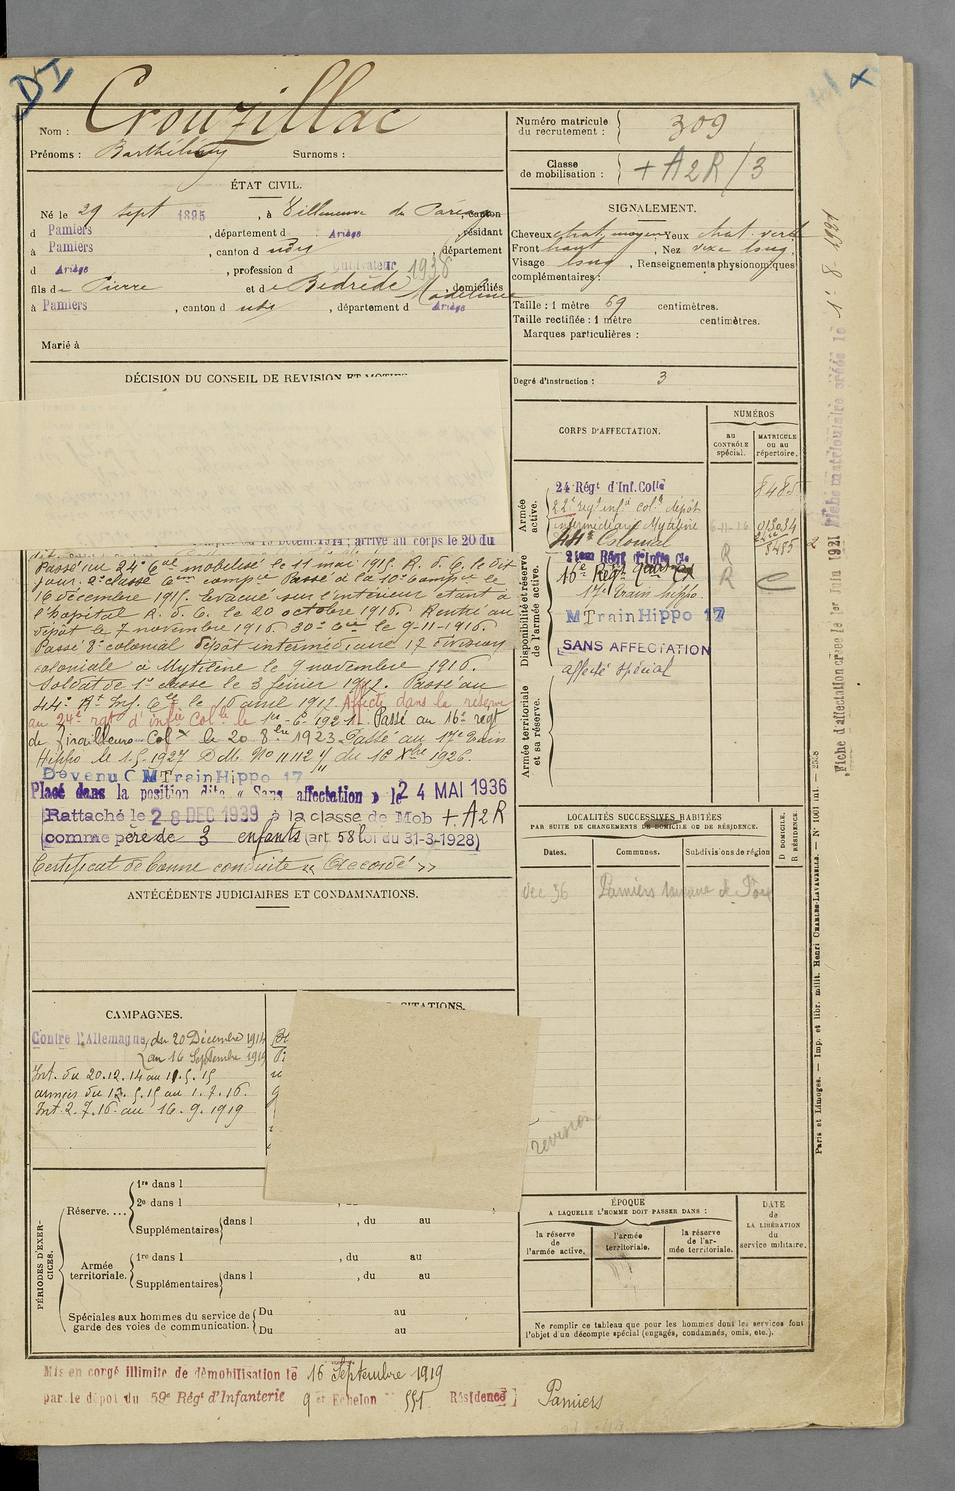 DI
Nom : Crouzillac
Prénoms : Barthélémy Surnoms :
ÉTAT CIVIL.
Né le 29 sept 1895, à Villeneuve du Pareage, canton
d Pamiers, département d Ariège, résidant
à Pamiers, canton d udit, département
d Ariège, profession d Cultivateur 1938
fils de Pierre et de Bedrède Madeleine, domiciliés
à Pamiers, canton d udit, département d Ariège
Marié à
Numéro matricule du recrutement : 309
Classe de mobilisation : + A2R/3
SIGNALEMENT.
Cheveux chat. moyen, Yeux chat. verd
Front haut, Nez vexe long.
Visage long, Renseignements physionomiques
complémentaires :
Taille : 1 mètre 69 centimètres.
Taille rectifiée : 1 mètre centimètres.
Marques particulières :
Degré d'instruction : 3
DÉCISION DU CONSEIL DE REVISION ET MOTIFS
15 Décem. 1914; arrivé au corps le 20 du
Passé au 24e Cal mobilisé le 11 mai 1915. R. d. C. le dit
jour. 2e classe 6em compie Passé à la 10e Comp ie le
16 décembre 1915. Evacué sur l'intérieur étant à
l'hopital R. d. C. le 20 octobre 1916. Rentré au
dépôt le 7 novembre 1916. 30e Cie le 9-11-1916.
Passé 8e colonial dépôt intermédiaire 17 division
coloniale à Mytilène le 9 novembre 1916.
Soldat de 1e classe le 3 février 1917. Passé au
44e Rt Inf. Cle le avril 1917. Affecté dans la réserve
au 24e rgt d'infie Colle le 1er-6-1921. Passé au 16e regt
de Tirailleurs Colx le 20 8bre 1923 Passé au 17e Train
Hippo le 1.5.1927 D M. No 11112 du 16 Xbre 1926.
Devenu C M Train Hippo 17
Placé dans la position dite « Sans affectation » le 24 MAI 1936
Rattaché le 28 DEC 1939 à la classe de Mob + A2R
comme père de 3 enfants (art. 58 loi du 31-3-1928)
Certificat de bonne conduite « Accordé »
CORPS D'AFFECTATION.
NUMÉROS
au CONTRÔLE spécial.
MATRICULE ou au répertoire.
Armée active.
24 Régt d'Inf. Colle
22e regt infie colle dépôt
intermédiaire Mytilène
44e Colonial
8485
013034
8485
Disponibilité et réserve de l'armée active.
24em Régt d'Infie Cle
16e Regt
17e Train hippo.
M Train Hippo 17
SANS AFFECTATION
affecté spécial
R
R C
Armée territoriale et sa réserve.
LOCALITÉS SUCCESSIVES HABITÉES
PAR SUITE DE CHANGEMENTS DE DOMICILE OU DE RÉSIDENCE.
Dates. Communes. Subdivisions de région
D DOMICILE. R RÉSIDENCE.
dec 36 Pamiers
ANTÉCÉDENTS JUDICIAIRES ET CONDAMNATIONS.
CAMPAGNES.
CITATIONS.
Contre l'Allemagne du 20 Décembre 1914
au 16 Septembre 1919
Int. du 20.12.14 au 11.5.15
armées du 12.5.15 au 1.7.16.
Int 2.7.16 au 16.9.1919
revision
PÉRIODES D'EXERCICES.
Réserve....
1re dans l
2e dans l
Supplémentaires dans l , du au
Armée territoriale.
1re dans l , du au
Supplémentaires dans l , du au
Spéciales aux hommes du service de garde des voies de communication.
Du au
Du au
ÉPOQUE
A LAQUELLE L'HOMME DOIT PASSER DANS :
la réserve de l'armée active.
l'armée territoriale.
la réserve de l'armée territoriale.
DATE de LA LIBÉRATION du service militaire.
Ne remplir ce tableau que pour les hommes dont les services font
l'objet d'un décompte spécial (engagés, condamnés, omis, etc.).
Mis en congé illimité de démobilisation le 16 Septembre 1919
par le dépôt du 59e Régt d'Infanterie 9e Echelon No 551 Résidence Pamiers
Paris et Limoges. — Imp. et libr. milit. Henri CHARLES-LAVAUZELLE. — N° 1001 int. — 2538
Fiche d'affectation créée le 1er Juin 1921
Fiche matriculaire créée le 1-8-1921